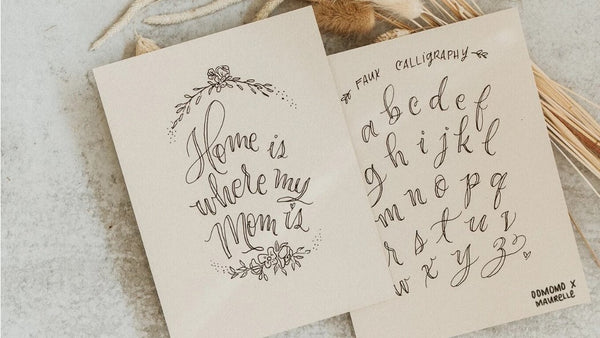 Home is
where my
Mom is
FAUX CALLIGRAPHY
a b c d e f
g h i j k l
m n o p q
r s t u v
w x y z
DOMOMO X
MAURELLE